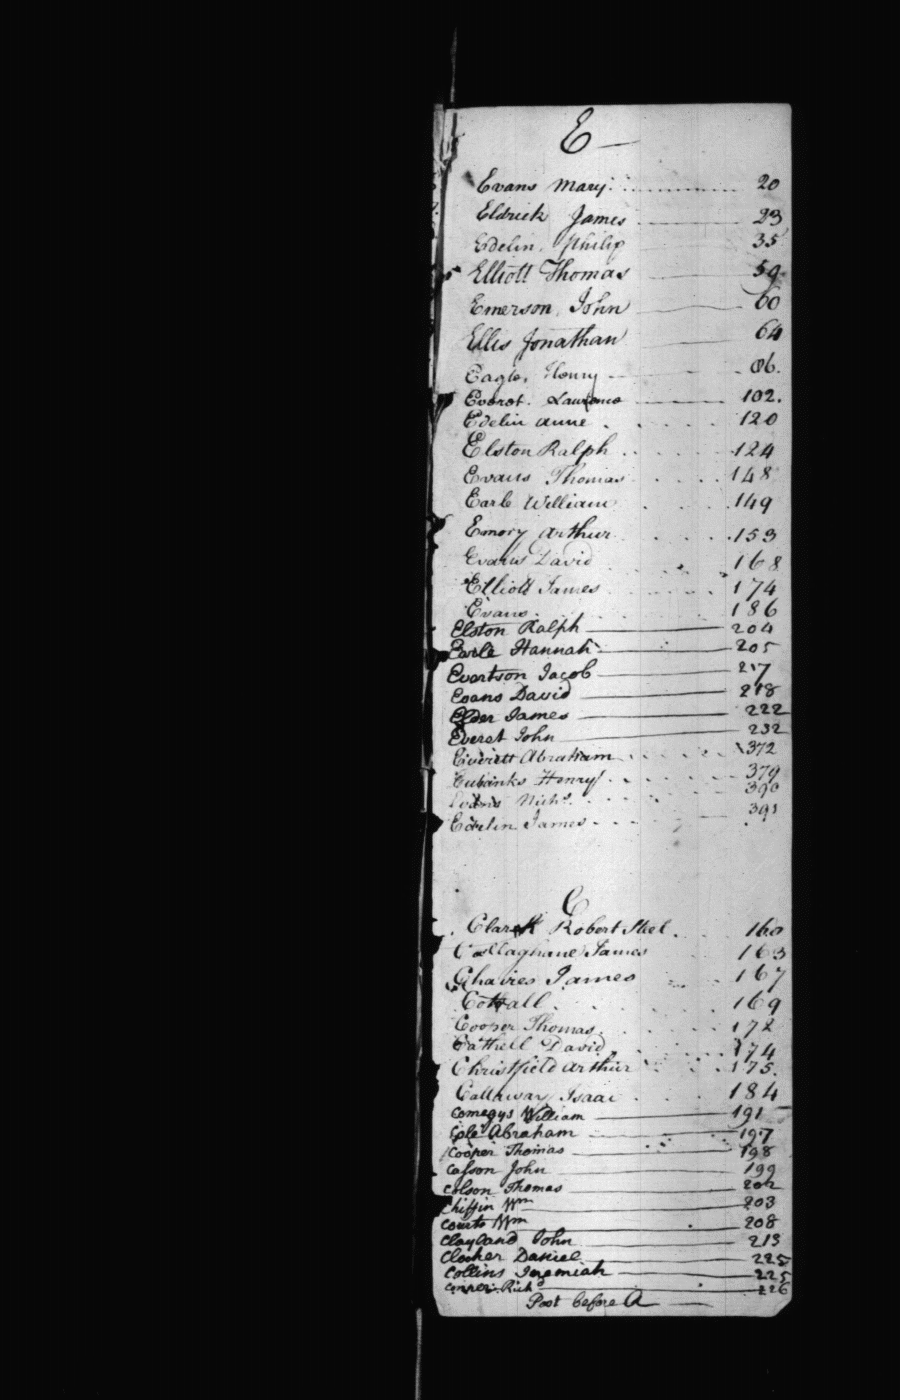 E
Evans Mary 20
Eldrick James 23
Edelin, Philip 35
Elliott Thomas 59
Emerson, John 60
Ellis Jonathan 64
Eagle, Henry 86.
Everet. Lawrence 102.
Edelin Anne 120
Elston Ralph 124
Evans Thomas 148
Earle William 149
Emory Arthur 153
Evans David 168
Elliott James 174
Evans 186
Elston Ralph 204
Earle Hannah 205
Evertson Jacob 217
Evans David 218
Elder James 222
Everet John 232
Everett Abraham 372
Eubanks Henry 379
Evans Nichs. 390
Edelin James 391
C
Clark Robert Steel 160
Callaghane James 163
Chaires James 167
Cottall 169
Cooper Thomas 172
Cathell David 174
Christfield Arthur 175.
Callaway Isaac 184
Comegys William 191
Cole Abraham 197
Cooper Thomas 198
Casson John 199
Colson Thomas 202
Chiffin Wm 203
Courts Wm 208
Clayland John 213
Clocker Daniel 225
Collins Jeremiah 225
Richd 226
Post before A